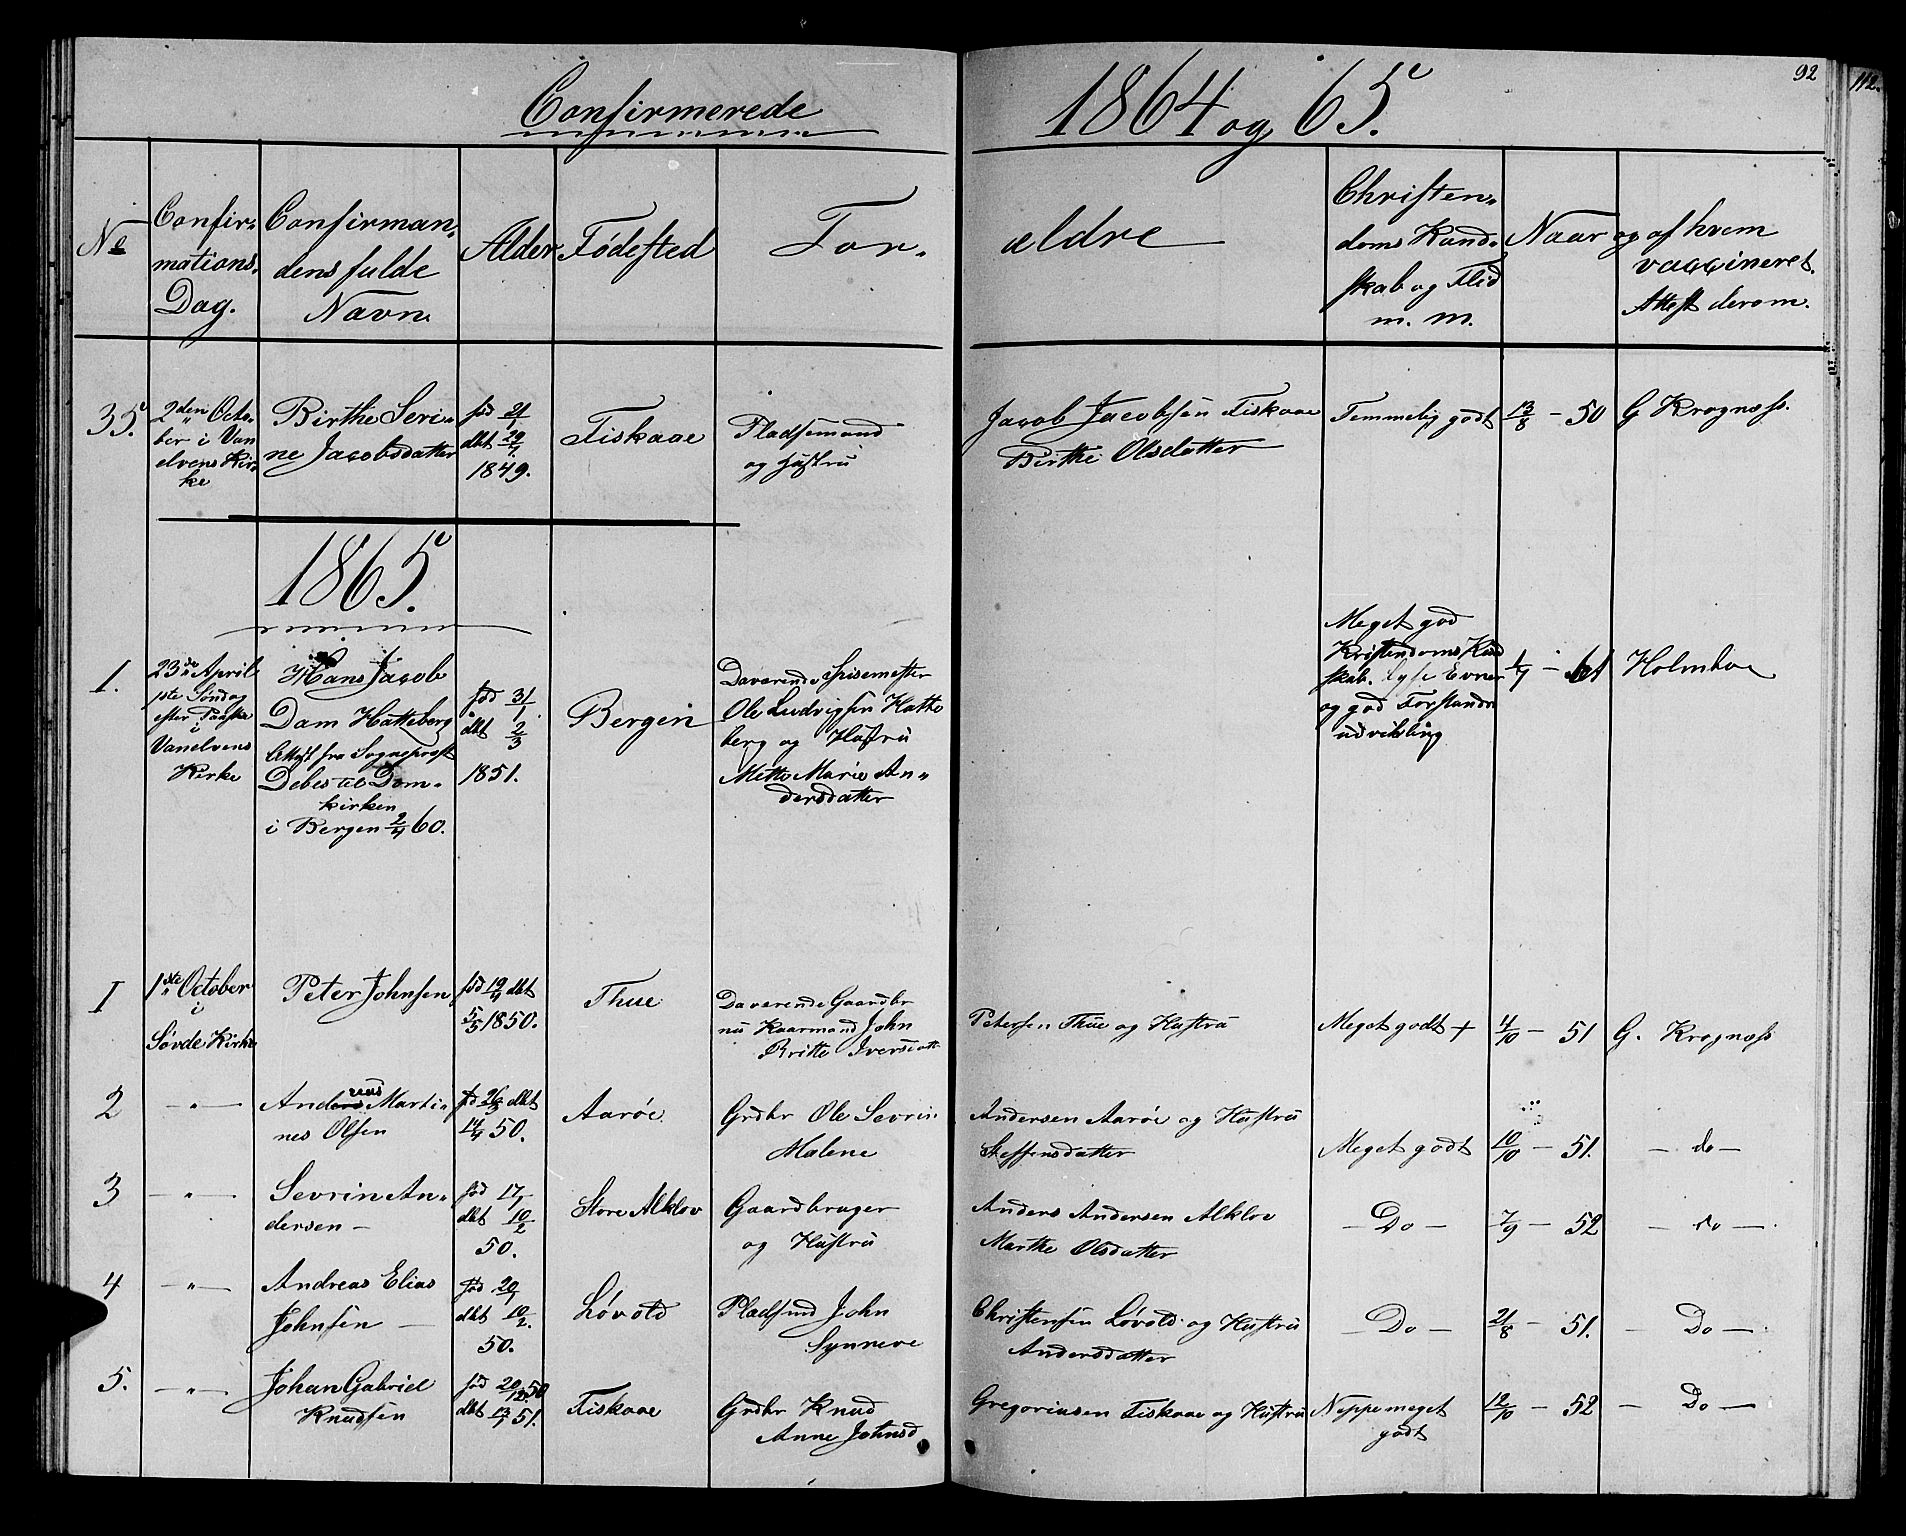 Confirmerede
1864 og 65.
92
112.
No
Confir-
mations-
Dag.
Confirman-
dens fulde
Navn.
Alder
Fødested
For-
ældre
Christen-
doms Kund-
skab og Flid
m. m.
Naar og af hvem
vaccineret.
Attest derom.
35.
2den Octo-
ber i Van
elvens Kir-
ke
Birthe Seri-
ne Jacobsdatter
fød 21/7
dbt 29/7
1849.
Fiskaae
Pladsemand
og Hustru
Jacob Jacobsen Fiskaae
Birthe Olsdatter
Temmelig godt
13/8 - 50
G Krognæss.
1865.
1.
23de April
1ste Søndag
efter Paaske
i
Vanelvens
Kirke
Hans Jacob
Dam Hatteberg
Attest fra Sognepræst
Debes til Dom-
kirken
i Bergen 2/4 60.
fød 31/1
dbt 2/3
1851.
Bergen
Daværende Spisemester
Ole Ludvigsen Hatte
berg og Hustru
Mette Marie An-
dersdatter
Meget god
Kristendoms Kund
skab. lyse Evner
og god Forstands
udvikling
1/7 - 61
Holmboe
I
1ste October
i
Søvde Kirke
Peter Johnsen
fød 19/4 dbt
5/5 1850.
Thue
Daværende Gaardbr
nu Kaarmand John
Britte Iversdatt
Petersen Thue og Hustru
Meget godt +
11/10 - 51
G. Krognæss
2
- " -
Andreas Marti-
nes Olsen
fød 26/3 dbt
14/4 50.
Aarøe
Grdbr Ole Sevrin
Malene
Andersen Aarøe og Hustru
Steffensdatter
Meget godt
10/10 - 51.
- do -
3
- " -
Sevrin An-
dersen -
fød 17/1
dbt 10/2
50.
Store Alklov
Gaardbruger
og Hustru
Anders Andersen Alklov
Marthe Olsdatter
- Do -
7/9 - 52
- do -
4
- " -
Andreas Elias
Johnsen -
fød 20/1
dbt 10/2.
50.
Løvold
Pladsmd John
Synneve
Christensen Løvold og Hustru
Andersdatter
- Do -
21/8 - 51.
- Do -
5.
- " -
Johan Gabriel
Knudsen
fød 20/12 50
dbt 13/1 51.
Fiskaae
Grdbr Knud
Anne Johnsd
Gregoriusen Fiskaae og Hustru
Neppe meget
godt
12/10 - 52
- Do -